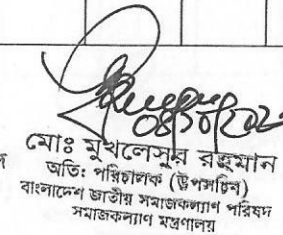 মোঃ মুখলেসুর রহমান
অতিঃ পরিচালক (উপসচিব)
বাংলাদেশ জাতীয় সমাজকল্যাণ পরিষদ
সমাজকল্যাণ মন্ত্রণালয়